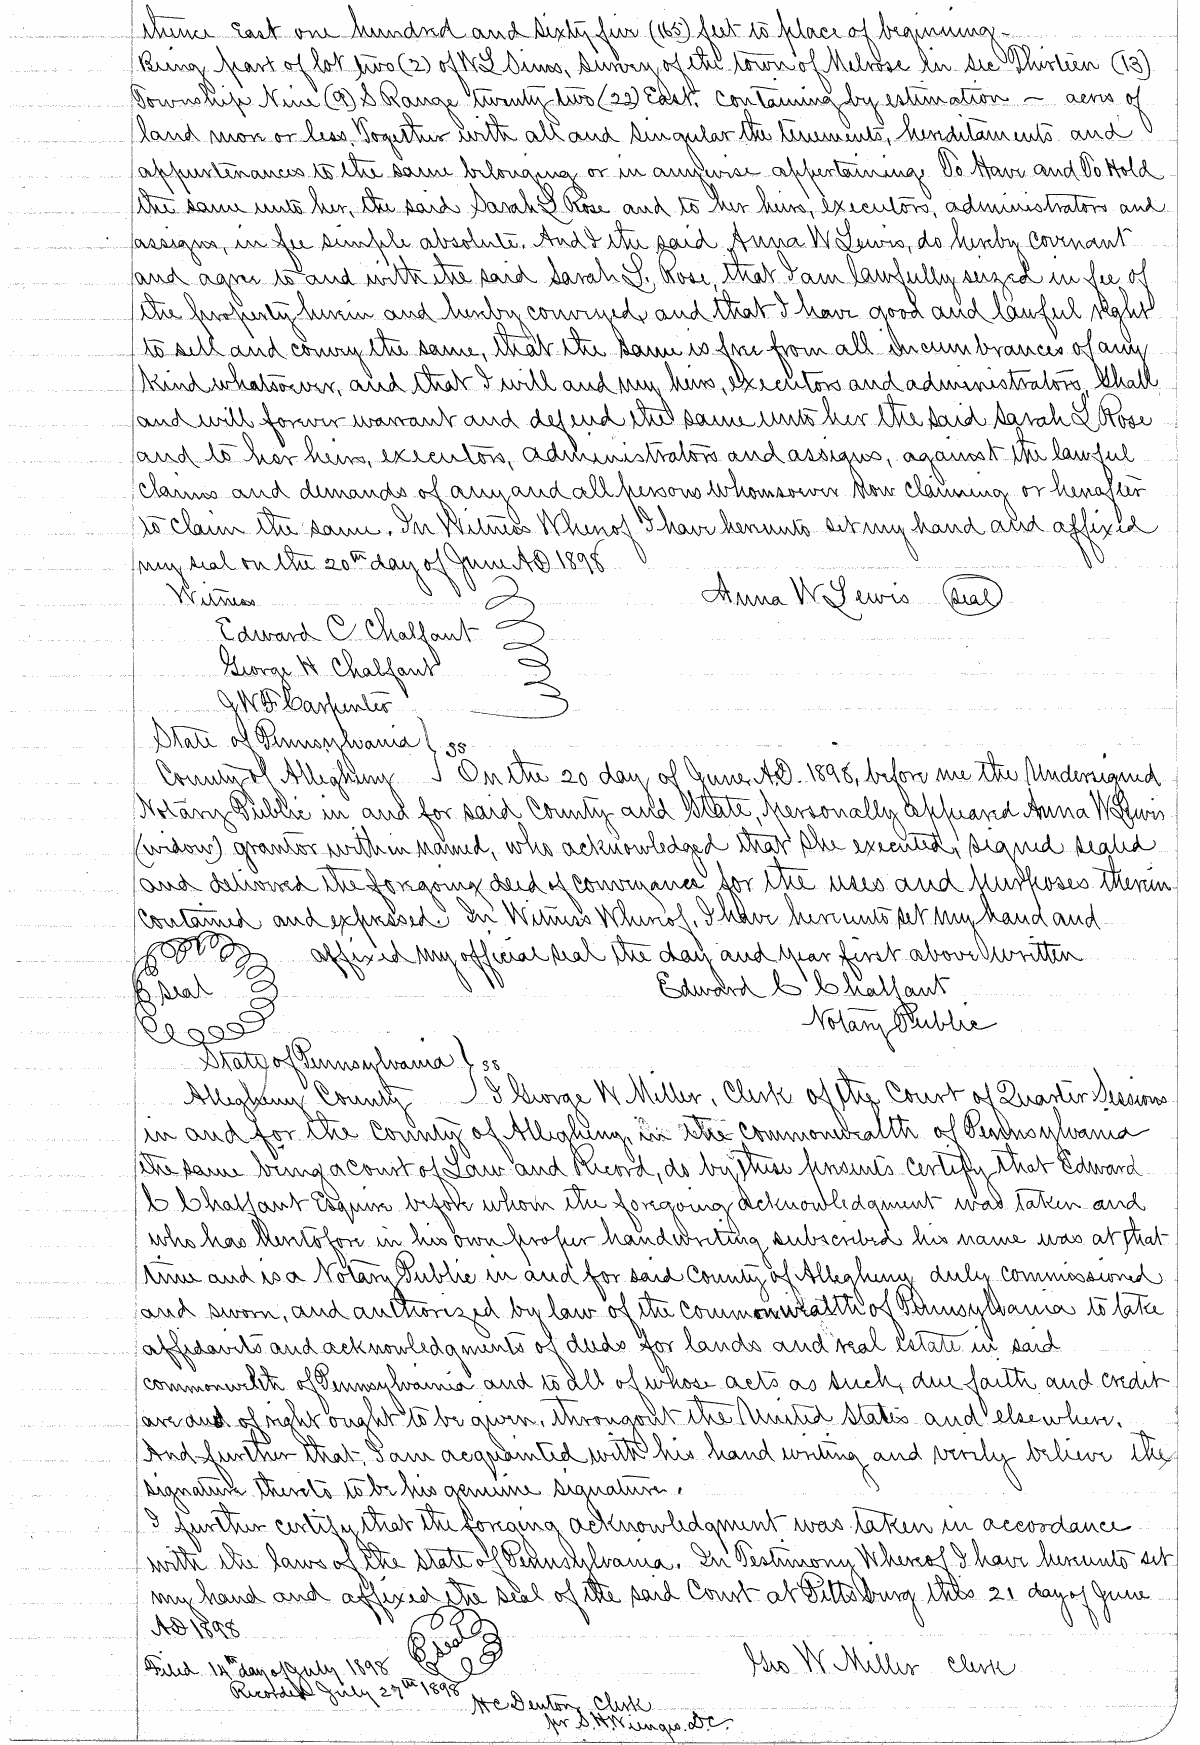 thence East one hundred and sixty five (165) feet to place of beginning -
Being part of lot two (2) of W L Sims, Survey of the town of Melrose in sec Thirteen (13)
Township Nine (9) S Range twenty two (22) East. Containing by estimation — acres of
land more or less. Together with all and singular the tenements, hereditaments and
appurtenances to the same belonging or in anywise appertaining. To Have and To Hold
the same unto her, the said Sarah L Rose and to her heirs, executors, administrators and
assigns, in fee simple absolute. And I the said Anna W Lewis, do hereby covenant
and agree to and with the said Sarah L. Rose, that I am lawfully seized in fee of
the property herein and hereby conveyed, and that I have good and lawful right
to sell and convey the same, that the same is free from all incumbrances of any
kind whatsoever, and that I will and my heirs, executors and administrators, shall
and will forever warrant and defend the same unto her the said Sarah L Rose
and to her heirs, executors, administrators and assigns, against the lawful
claims and demands of any and all persons whomsoever now claiming or hereafter
to claim the same. In Witness Whereof I have hereunto set my hand and affixed
my seal on the 20th day of June AD 1898
Witness Anna W Lewis (seal)
Edward C Chalfant
George H Chalfant
G W F Carpenter
State of Pennsylvania } ss
County of Allegheny } On the 20 day of June A.D. 1898, before me the Undersigned
Notary Public in and for said County and State, personally appeared Anna W Lewis
(widow) grantor within named, who acknowledged that she executed, signed sealed
and delivered the foregoing deed of conveyance for the uses and purposes therein
contained and expressed. In Witness Whereof, I have hereunto set my hand and
affixed my official seal the day and year first above written
seal Edward C Chalfant
Notary Public
State of Pennsylvania } ss
Allegheny County } I George W Miller, Clerk of the Court of Quarter Sessions
in and for the County of Allegheny, in the commonwealth of Pennsylvania
the same being a court of Law and Record, do by these presents certify that Edward
C Chalfant Esquire before whom the foregoing acknowledgment was taken and
who has theretofore in his own proper handwriting subscribed his name was at that
time and is a Notary Public in and for said County of Allegheny duly commissioned
and sworn, and authorized by law of the commonwealth of Pennsylvania to take
affidavits and acknowledgments of deeds for lands and real estate in said
commonwelth of Pennsylvainia and to all of whose acts as such, due faith and credit
are and of right ought to be given, througout the United States and elsewhere.
And further that, I am acquainted with his hand writing and verily believe the
signature thereto to be his genuine signature.
I further certify that the foreging acknowledgment was taken in accordance
with the laws of the State of Pennsylvania. In Testimony Whereof I have hereunto set
my hand and affixed the seal of the said Court at Pittsburg this 21 day of June
AD 1898
seal
Filed 14th day of July 1898 Geo W Miller Clerk
Recorded July 27th 1898
H C Denton, Clerk
per S. H. D.C.